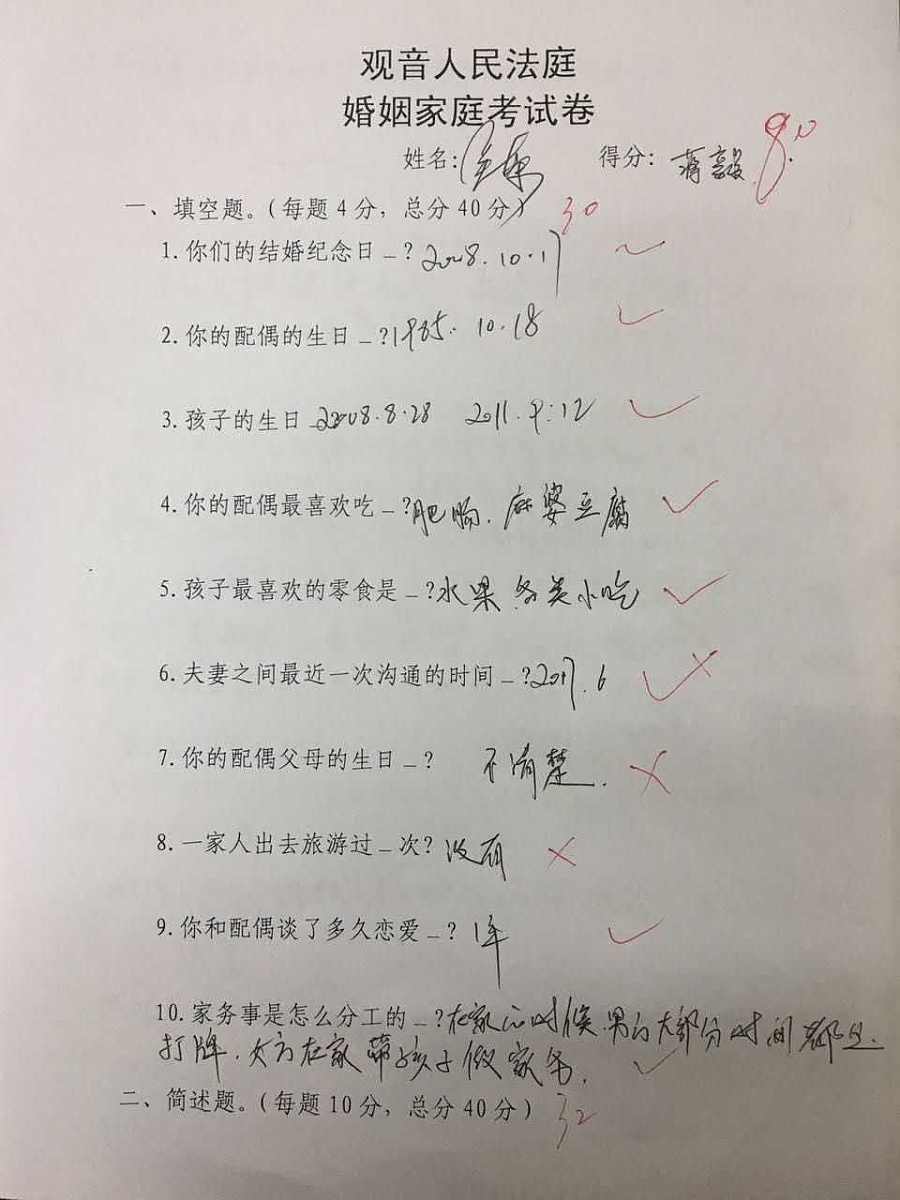 观音人民法庭
婚姻家庭考试卷
姓名： 得分： 蒋 80
一、填空题。（每题4分，总分40分） 30
1.你们的结婚纪念日_？2008.10.17
2.你的配偶的生日_？1985.10.18
3.孩子的生日_2008.8.28 2011.9.12
4.你的配偶最喜欢吃_？肥肠.麻婆豆腐
5.孩子最喜欢的零食是_？水果 各类小吃
6.夫妻之间最近一次沟通的时间_？2017.6
7.你的配偶父母的生日_？ 不清楚.
8.一家人出去旅游过_次？没有
9.你和配偶谈了多久恋爱_？1年
10.家务事是怎么分工的_？在家的时候.男的大部分时间都是.
打牌.女的在家带孩子做家务.
二、简述题。（每题10分，总分40分） 32